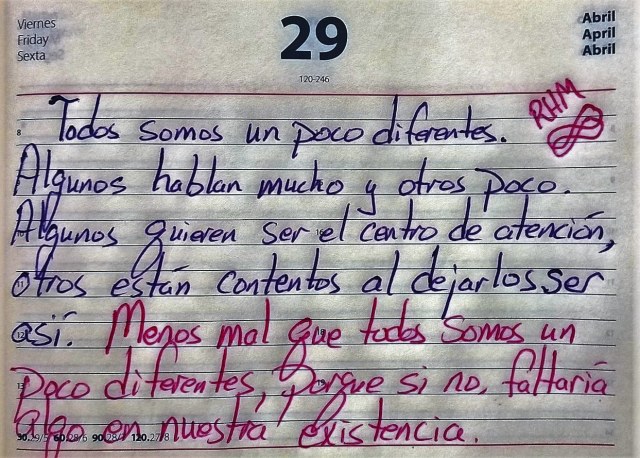 Viernes
Friday
Sexta
29
120-246
Abril
April
Abril
RHM
Todos somos un poco diferentes.
Algunos hablan mucho y otros poco.
Algunos quieren ser el centro de atención,
otros están contentos al dejarlos ser
así. Menos mal que todos somos un
poco diferentes, porque si no, faltaría
algo en nuestra existencia.